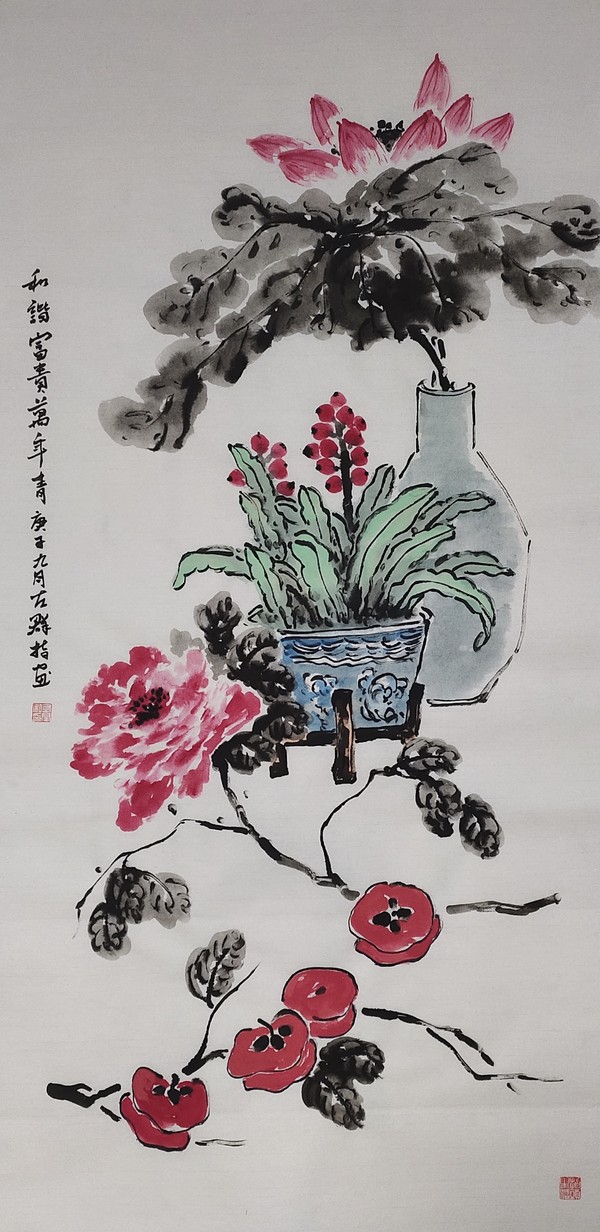 和諧富貴萬年青庚子九月左群指画